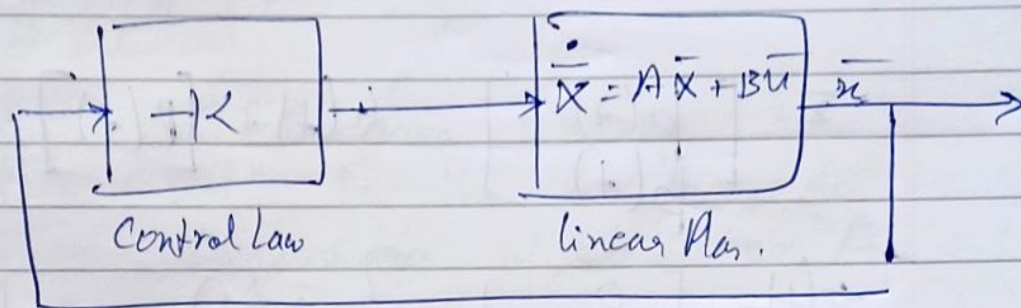 -K
ẋ̄ = Ax̄ + Bū
x̄
Control Law
linear Plan.